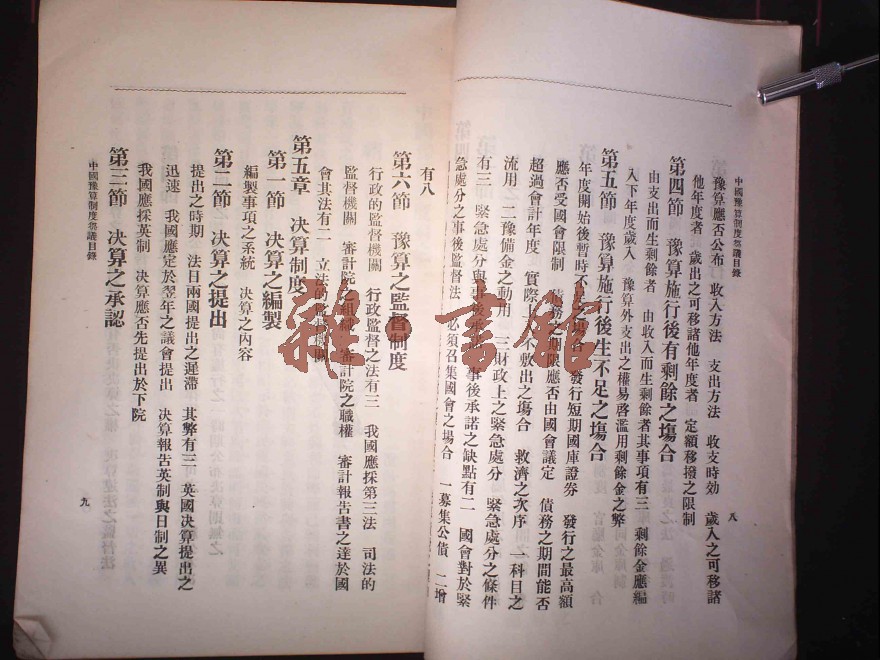 中國豫算制度芻議目錄
豫算應否公布　收入方法　支出方法　收支時効　歲入之可移諸
他年度者　歲出之可移諸他年度者　定額移撥之限制
第四節　豫算施行後有剩餘之塲合
由支出而生剩餘者　由收入而生剩餘者其事項有三　剩餘金應編
入下年度歲入　豫算外支出之權易啓濫用剩餘金之弊
第五節　豫算施行後生不足之塲合
年度開始後暫時不足之塲合　發行短期國庫證券　發行之最高額
應否受國會限制　債務之期限應否由國會議定　債務之期間能否
超過會計年度　實際上入不敷出之塲合　救濟之次序　一科目之
流用　二豫備金之動用　三財政上之緊急處分　緊急處分之條件
有三　緊急處分與事後承諾　事後承諾之缺點有二　國會對於緊
急處分之事後監督法　必須召集國會之塲合　一募集公債　二增
八
有八
第六節　豫算之監督制度
行政的監督機關　行政監督之法有三　我國應採第三法　司法的
監督機關　審計院之組織　審計院之職權　審計報告書之達於國
會其法有二　立法的監督機關
第五章　決算制度
第一節　決算之編製
編製事項之系統　決算之內容
第二節　決算之提出
提出之時期　法日兩國提出之遲滯　其弊有三　英國決算提出之
迅速　我國應定於翌年之議會提出　決算報告英制與日制之異
第三節　決算之承認
我國應採英制　決算應否先提出於下院
中國豫算制度芻議目錄
九
雜·書館